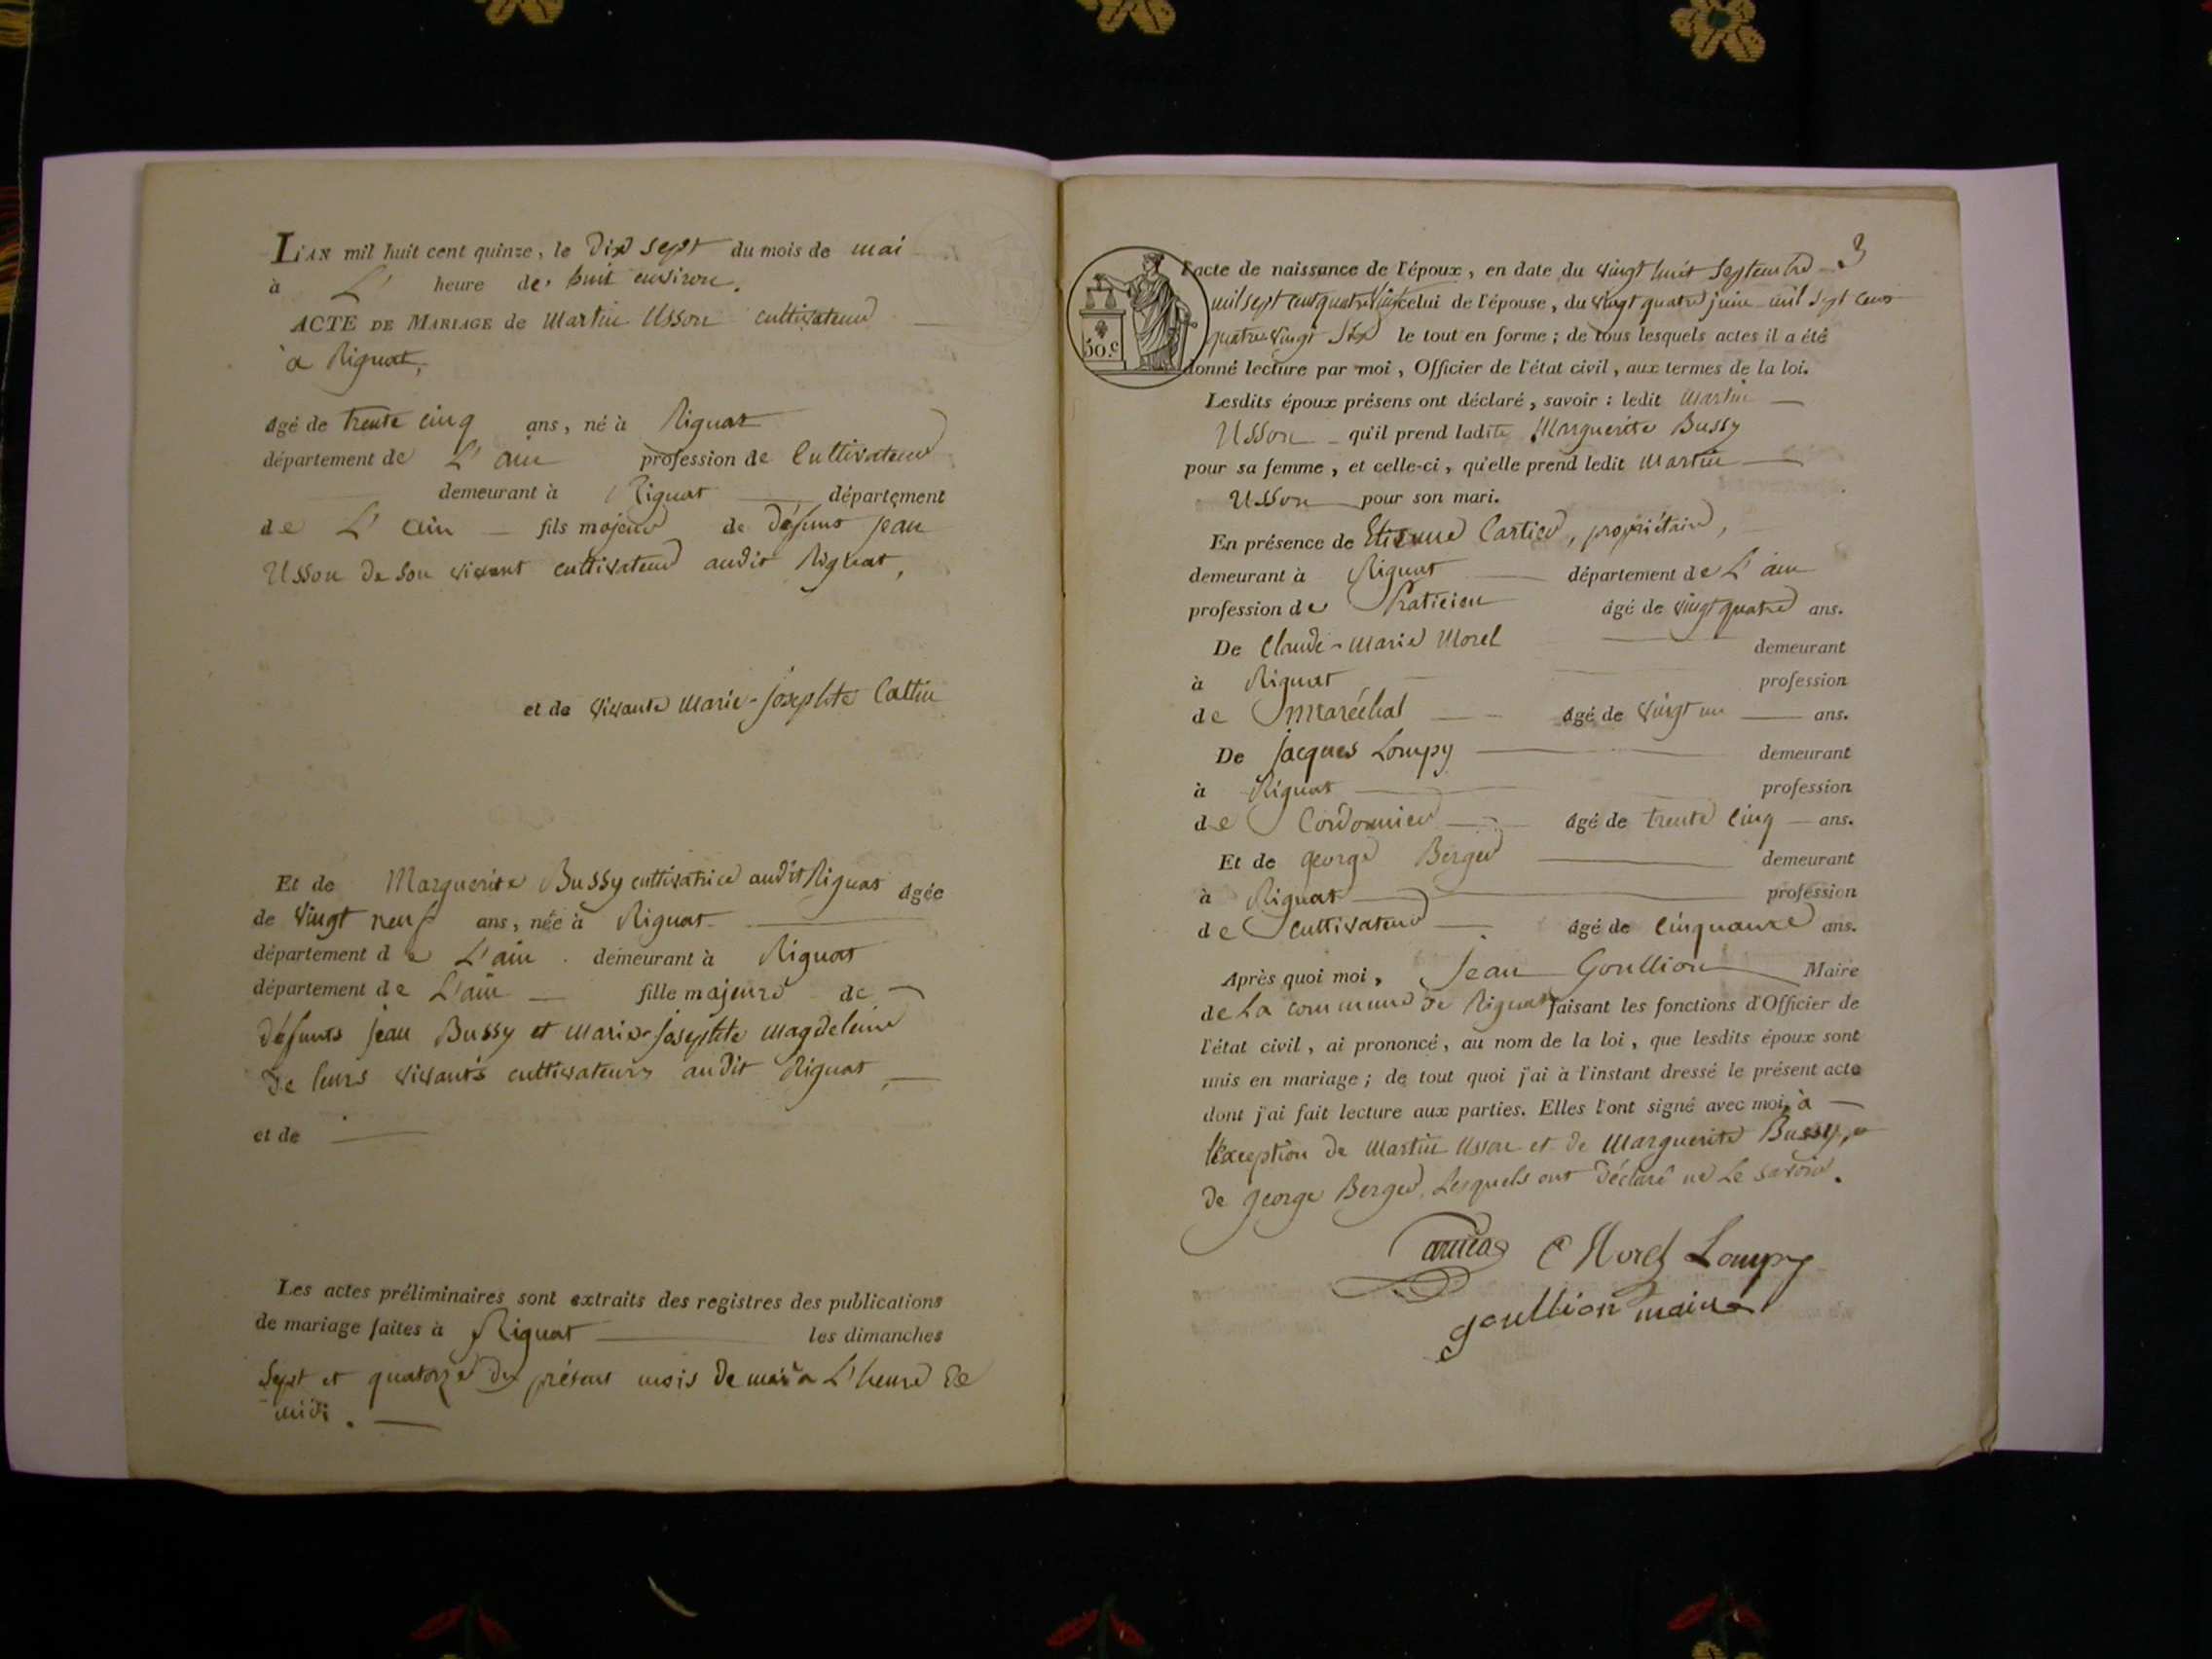 L'AN mil huit cent quinze, le Dix sept du mois de mai
à L' heure de huit environ.
ACTE DE MARIAGE de Martin Usson cultivateur
à Rignat,
âgé de trente cinq ans, né à Rignat
département de L' ain profession de Cultivateur
demeurant à Rignat département
de L' ain fils majeur de défunt jean
Usson de son vivant cultivateur audit Rignat,
et de vivante Marie-josephte Cattin
Et de Marguerite Bussy cultivatrice audit Rignat âgée
de vingt neuf ans, née à Rignat
département de L'ain demeurant à Rignat
département de L'ain fille majeure de
défunts jean Bussy et Marie-josephte Magdeleine
de leurs vivants cultivateurs audit Rignat,
et de
Les actes préliminaires sont extraits des registres des publications
de mariage faites à Rignat les dimanches
Sept et quatorze du présent mois de mai à L'heure de
midi.
3
l'acte de naissance de l'époux, en date du vingt huit Septembre
mil sept cent quatre vingt celui de l'épouse, du vingt quatre juin mil sept cent
quatre vingt Six le tout en forme; de tous lesquels actes il a été
50.c
donné lecture par moi, Officier de l'état civil, aux termes de la loi.
Lesdits époux présens ont déclaré, savoir : ledit Martin
Usson qu'il prend ladite Marguerite Bussy
pour sa femme, et celle-ci, qu'elle prend ledit Martin
Usson pour son mari.
En présence de Etienne Cartier, propriétaire,
demeurant à Rignat département de L' ain
profession de Praticien âgé de vingt quatre ans.
De Claude-Marie Morel demeurant
à Rignat profession
de Maréchal âgé de vingt un ans.
De Jacques Loupy demeurant
à Rignat profession
de Cordonnier âgé de trente Cinq ans.
Et de george Berger demeurant
à Rignat profession
de Cultivateur âgé de Cinquante ans.
Après quoi moi, Jean Goullion Maire
de La commune de Rignat faisant les fonctions d'Officier de
l'état civil, ai prononcé, au nom de la loi, que lesdits époux sont
unis en mariage; de tout quoi j'ai à l'instant dressé le présent acte
dont j'ai fait lecture aux parties. Elles l'ont signé avec moi, à
l'exception de Martin Usson et de Marguerite Bussy, et
de george Berger, Lesquels ont déclaré ne Le savoir.
C Morel Loupy
goullion maire